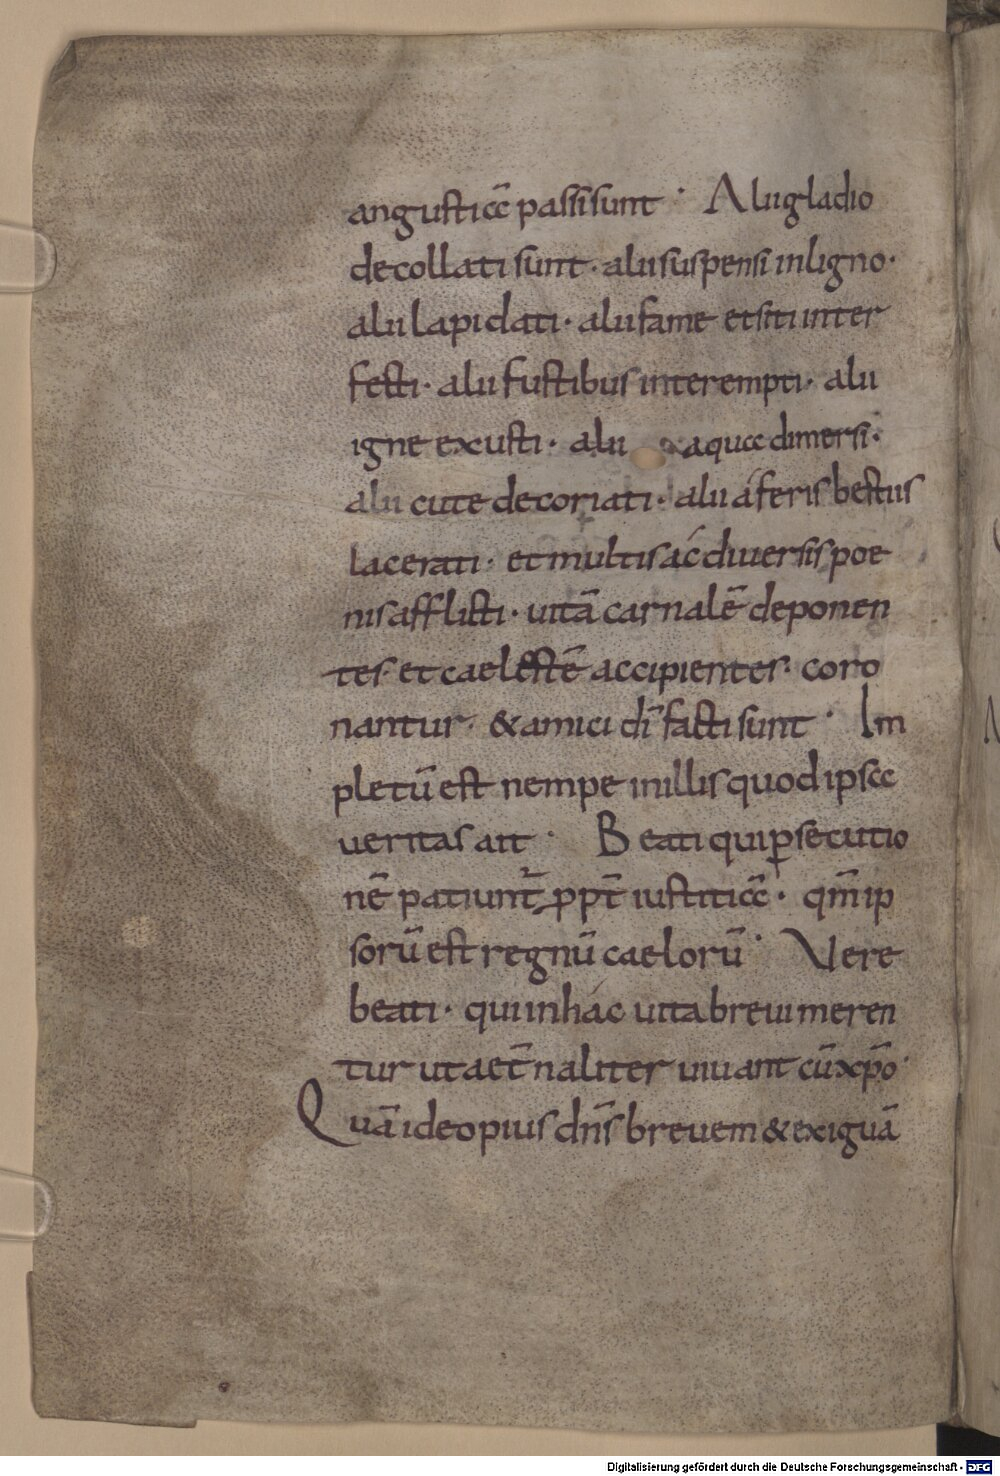 angusticc̄ passi sunt · Alii gladio
decollati sunt · alii suspensi in ligno ·
alii lapidati · alii fame et siti inter
fecti · alii fustibus interempti · alii
igne exusti · alii aqucc dimersi ·
alii cute decoriati · alii á feris bestiis
lacerati · et multis ác diuersis poe
nis afflicti · uitā carnalē deponen
tes · et caelestē accipientes · coro
nantur · & amici dī facti sunt · Im
pletū est nempe in illis quod ipscc
ueritas ait · Beati qui ꝑsecutio
nē patiunt̄ ꝓpt̄ iusticicc̄ · qm̄ ip
sorū est regnū caelorū · Vere
beati · qui in hác uita breui meren
tur ut aet̄naliter uiuant cū xp̄o ·
Quā ideo pius dn̄s breuem & exiguā
Digitalisierung gefördert durch die Deutsche Forschungsgemeinschaft - DFG